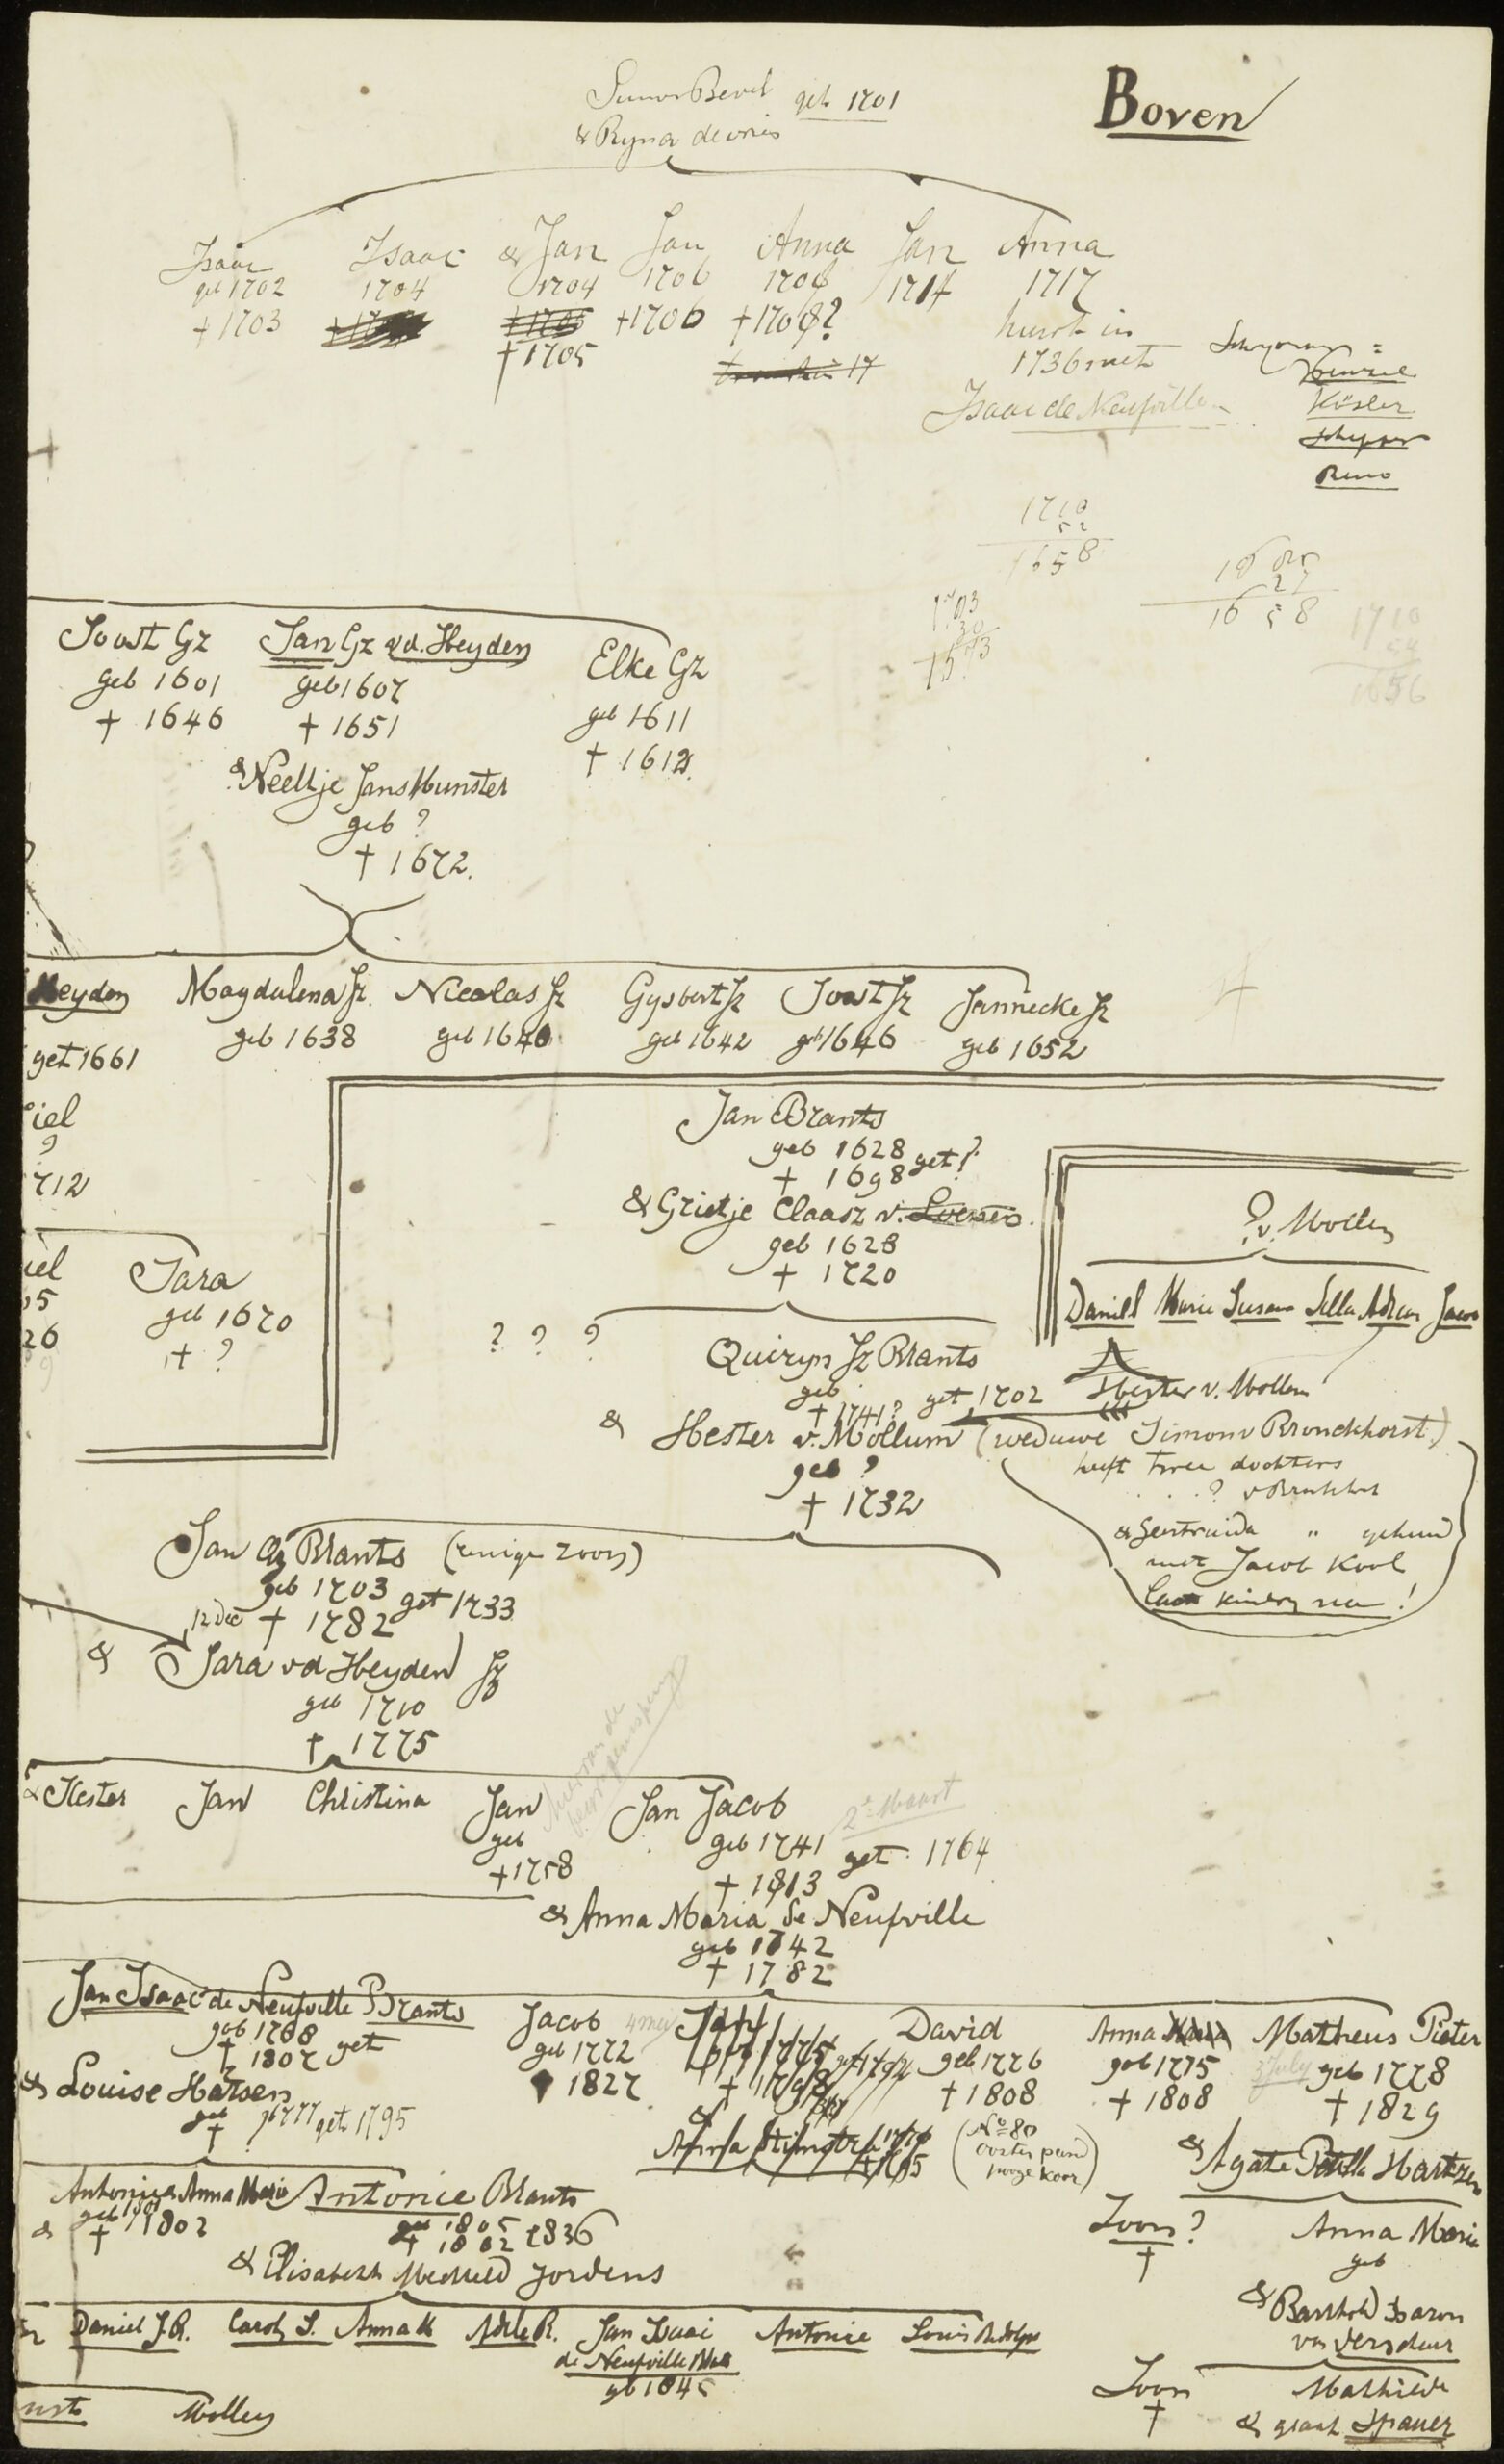 Boven
Simon Bevel get 1701
& Ryna de vries
Isaac
geb 1702
+ 1703
Isaac
1704
& Jan
1704
+ 1705
Jan
1706
+ 1706
Anna
1708
+ 1708?
Jan
1714
Anna
1717
huwt in
1736 met
Isaac de Neufville
Kösler
1710
52
1658
1685
27
1658
1710
1656
Joost Gz
geb 1601
+ 1646
Jan Gz vd. Heyden
geb 1607
+ 1651
& Neeltje Jans Munster
geb ?
+ 1672.
Elke Gz
geb 1611
+ 1612.
Heyden
get 1661
iel
?
712
Magdalena Jz.
geb 1638
Nicolas Jz
geb 1640
Gysbert Jz
geb 1642
Joost Jz
geb 1646
Jannecke Jz
geb 1652
iel
05
26
Sara
geb 1670
+ ?
Jan Brants
geb 1628 get ?
+ 1698
& Grietje Claasz v.
geb 1628
+ 1720
? ? ?
Quiryn Jz Brants
geb
+ 1741? get 1702
& Hester v. Mollum (weduwe Simon v Bronckhorst)
geb ?
+ 1732
? v. Mollem
Daniel Marie Susan Adrian Jacob
Hester v. Mollem
heeft twee dochters
?
& Geertruida " gehuwd
met Jacob Kool
laat kindren na!
Jan Qz Brants (eenige zoon)
geb 1703 get 1733
12 Dec + 1782
& Sara vd Heyden Jz
geb 1710
+ 1775
& Hester
Jan
Christina
Jan
geb
+ 1758
Jan Jacob
geb 1741 get 1764
2e Maart
+ 1813
& Anna Maria de Neufville
geb 1742
+ 1782
Jan Isaac de Neufville Brants
geb 1768
+ 1807 get
& Louise Hartsen
geb 1777 get 1795
+
Jacob
geb 1772
1827
Jan
geb 1775
+ 1798
& Anna Stinstra
David
geb 1776
+ 1808
(No 80
Ooster pand
hooge koor)
Anna Maria
geb 1775
+ 1808
Matheus Pieter
3 July geb 1778
+ 1829
& Agate Petrella Hartsen
Antonia Anna Maria
geb 1801
+ 1802
&
Antonie Brants
geb 1805 1836
+ 1862
& Elisabeth Mechteld Jordens
Zoon ?
+
Anna Maria
geb
& Barthold Baron
van Verschuer
Daniel J.R.
Carol S.
Anna M
Adele R.
Jan Isaac
de Neufville Brants
gb 1845
Antonie
Louis Rudolph
Mollem
Zoon
+
Mathilde
& graaf Spauer